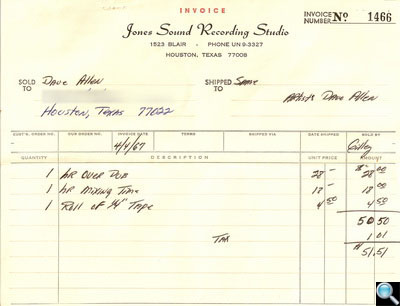 INVOICE
INVOICE NUMBER Nº 1466
Jones Sound Recording Studio
1523 BLAIR - PHONE UN 9-3327
HOUSTON, TEXAS 77008
SOLD TO Dave Allen
SHIPPED TO Same
Artist: Dave Allen
Houston, Texas 77022
CUST'S. ORDER NO. OUR ORDER NO. INVOICE DATE TERMS SHIPPED VIA DATE SHIPPED SOLD BY
4/4/67
QUANTITY DESCRIPTION UNIT PRICE AMOUNT
1 hr Over Dub 28 - $28 00
1 hr Mixing Time 18 - 18 00
1 Roll of 1/4" Tape 4 50 4 50
50 50
TAX 1 01
$51.51